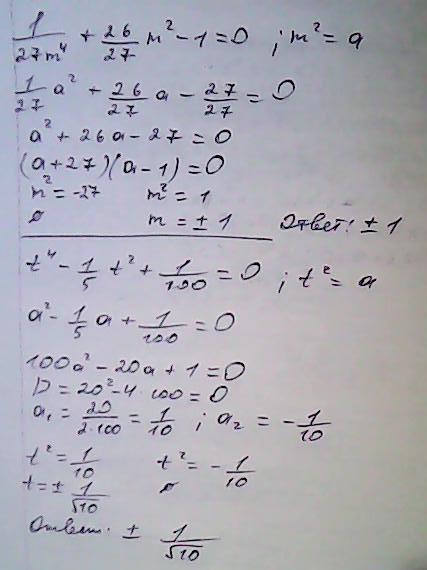 1/27m⁴ + 26/27 m² - 1 = 0 ; m² = a
1/27 a² + 26/27 a - 27/27 = 0
a² + 26a - 27 = 0
(a + 27)(a - 1) = 0
m² = -27 m² = 1
ø m = ± 1 Ответ: ± 1
t⁴ - 1/5 t² + 1/100 = 0 ; t² = a
a² - 1/5 a + 1/100 = 0
100a² - 20a + 1 = 0
D = 20² - 4·100 = 0
a₁ = 20/2·100 = 1/10 ; a₂ = - 1/10
t² = 1/10 t² = - 1/10
t = ± 1/√10 ø
Ответ: ± 1/√10